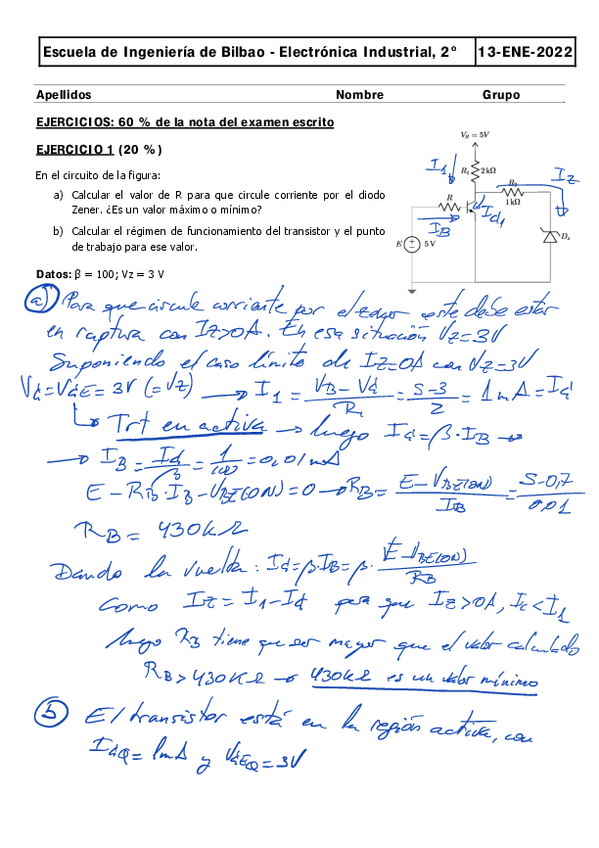 Escuela de Ingeniería de Bilbao - Electrónica Industrial, 2º 13-ENE-2022
Apellidos Nombre Grupo
EJERCICIOS: 60 % de la nota del examen escrito
EJERCICIO 1 (20 %)
En el circuito de la figura:
a) Calcular el valor de R para que circule corriente por el diodo
Zener. ¿Es un valor máximo o mínimo?
b) Calcular el régimen de funcionamiento del transistor y el punto
de trabajo para ese valor.
Datos: β = 100; Vz = 3 V
I1 R1 2 kΩ
R2 IZ
1 kΩ
R
IB
E 5 V
Dz
a) Para que circule corriente por el zener este debe estar
en ruptura con IZ>0A. En esa situación VZ=3V
Suponiendo el caso límite de IZ=0A con VZ=3V
= 3V (= VZ) → I1 = = = 1mA =
Trt en activa → luego = β·IB →
→ IB = = = 0,01mA
E - RB·IB - VBE(ON) = 0 → RB = E - VBE(ON) / IB = 5-0,7 / 0,01
RB = 430KΩ
Dando la vuelta: = β·IB = β· E-VBE(ON) / RB
Como IZ = I1 - para que IZ>0A, Ic < I1
luego RB tiene que ser mayor que el valor calculado
RB > 430KΩ → 430KΩ es un valor mínimo
b) El transistor está en la región activa, con
= 1mA y = 3V